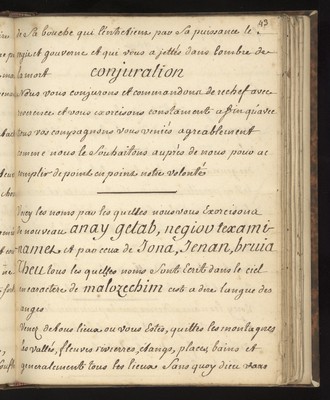 43
de Sa bouche qui l'entretient par Sa puissance le
regit et gouverne et qui vous a jettés dans l'ombre de
la mort
conjuration
Nous vous conjurons et commandons de rechef avec
vous exorcisons constament afin qu'avec
tous vos compagnons vous veniés agreablement
comme nous le Souhaitons auprès de nous pour ac
complir de point en point notre volonté
les noms par les quelles nous vous Exorcisons
de nouveau anay getab, negiov texami
names et par ceux de Jona, Jenan, bruia
Theu tous les quelles noms Sont Ecrit dans le ciel
en caractère de malozechim cest a dire langue des
anges
Venez de tous lieux ou vous Estes, quittes les montagnes
les vallés, fleuves rivierres, etangs, places, bains et
generalement tous les lieux Sans quoy dieu vous